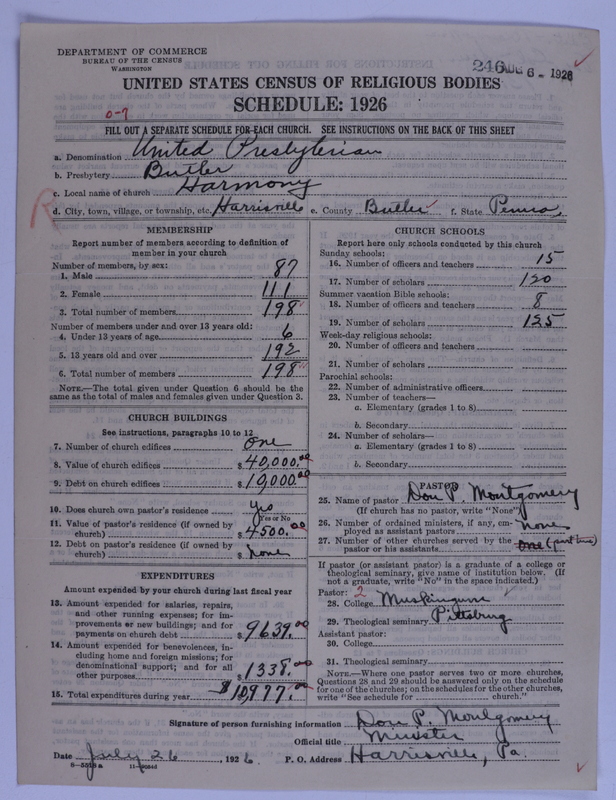 DEPARTMENT OF COMMERCE
BUREAU OF THE CENSUS
WASHINGTON
246 AUG 6 - 1926
UNITED STATES CENSUS OF RELIGIOUS BODIES
SCHEDULE: 1926
0-7
FILL OUT A SEPARATE SCHEDULE FOR EACH CHURCH. SEE INSTRUCTIONS ON THE BACK OF THIS SHEET
a. Denomination United Presbyterian
b. Presbytery Butler
c. Local name of church Harmony
d. City, town, village, or township, etc. Harrisville e. County Butler f. State Penna,
R
MEMBERSHIP
Report number of members according to definition of
member in your church
Number of members, by sex:
1. Male 87
2. Female 111
3. Total number of members 198
Number of members under and over 13 years old:
4. Under 13 years of age 6
5. 13 years old and over 192
6. Total number of members 198
NOTE.—The total given under Question 6 should be the
same as the total of males and females given under Question 3.
CHURCH BUILDINGS
See instructions, paragraphs 10 to 12
7. Number of church edifices one
8. Value of church edifices $ 40,000.00
9. Debt on church edifices $ 10,000.00
10. Does church own pastor's residence yes
(Yes or No)
11. Value of pastor's residence (if owned by
church) $ 4500.00
12. Debt on pastor's residence (if owned by
church) $ none
EXPENDITURES
Amount expended by your church during last fiscal year
13. Amount expended for salaries, repairs,
and other running expenses; for im-
provements or new buildings; and for
payments on church debt $ 9639.00
14. Amount expended for benevolences, in-
cluding home and foreign missions; for
denominational support; and for all
other purposes $ 1338.00
15. Total expenditures during year $ 10,977.00
CHURCH SCHOOLS
Report here only schools conducted by this church
Sunday schools:
16. Number of officers and teachers 15
17. Number of scholars 120
Summer vacation Bible schools:
18. Number of officers and teachers 8
19. Number of scholars 125
Week-day religious schools:
20. Number of officers and teachers
21. Number of scholars
Parochial schools:
22. Number of administrative officers
23. Number of teachers—
a. Elementary (grades 1 to 8)
b. Secondary
24. Number of scholars—
a. Elementary (grades 1 to 8)
b. Secondary
PASTOR
25. Name of pastor Don P. Montgomery
(If church has no pastor, write "None")
26. Number of ordained ministers, if any, em-
ployed as assistant pastors none
27. Number of other churches served by the
pastor or his assistants one (part time)
If pastor (or assistant pastor) is a graduate of a college or
theological seminary, give name of institution below. (If
not a graduate, write "No" in the space indicated.)
Pastor: 2
28. College Muskingum
29. Theological seminary Pittsburg
Assistant pastor:
30. College
31. Theological seminary
NOTE.—Where one pastor serves two or more churches,
Questions 28 and 29 should be answered only on the schedule
for one of the churches; on the schedules for the other churches,
write "See schedule for church."
Signature of person furnishing information Don P. Montgomery
Official title Minister
Date July 26, 1926 P. O. Address Harrisville, Pa.